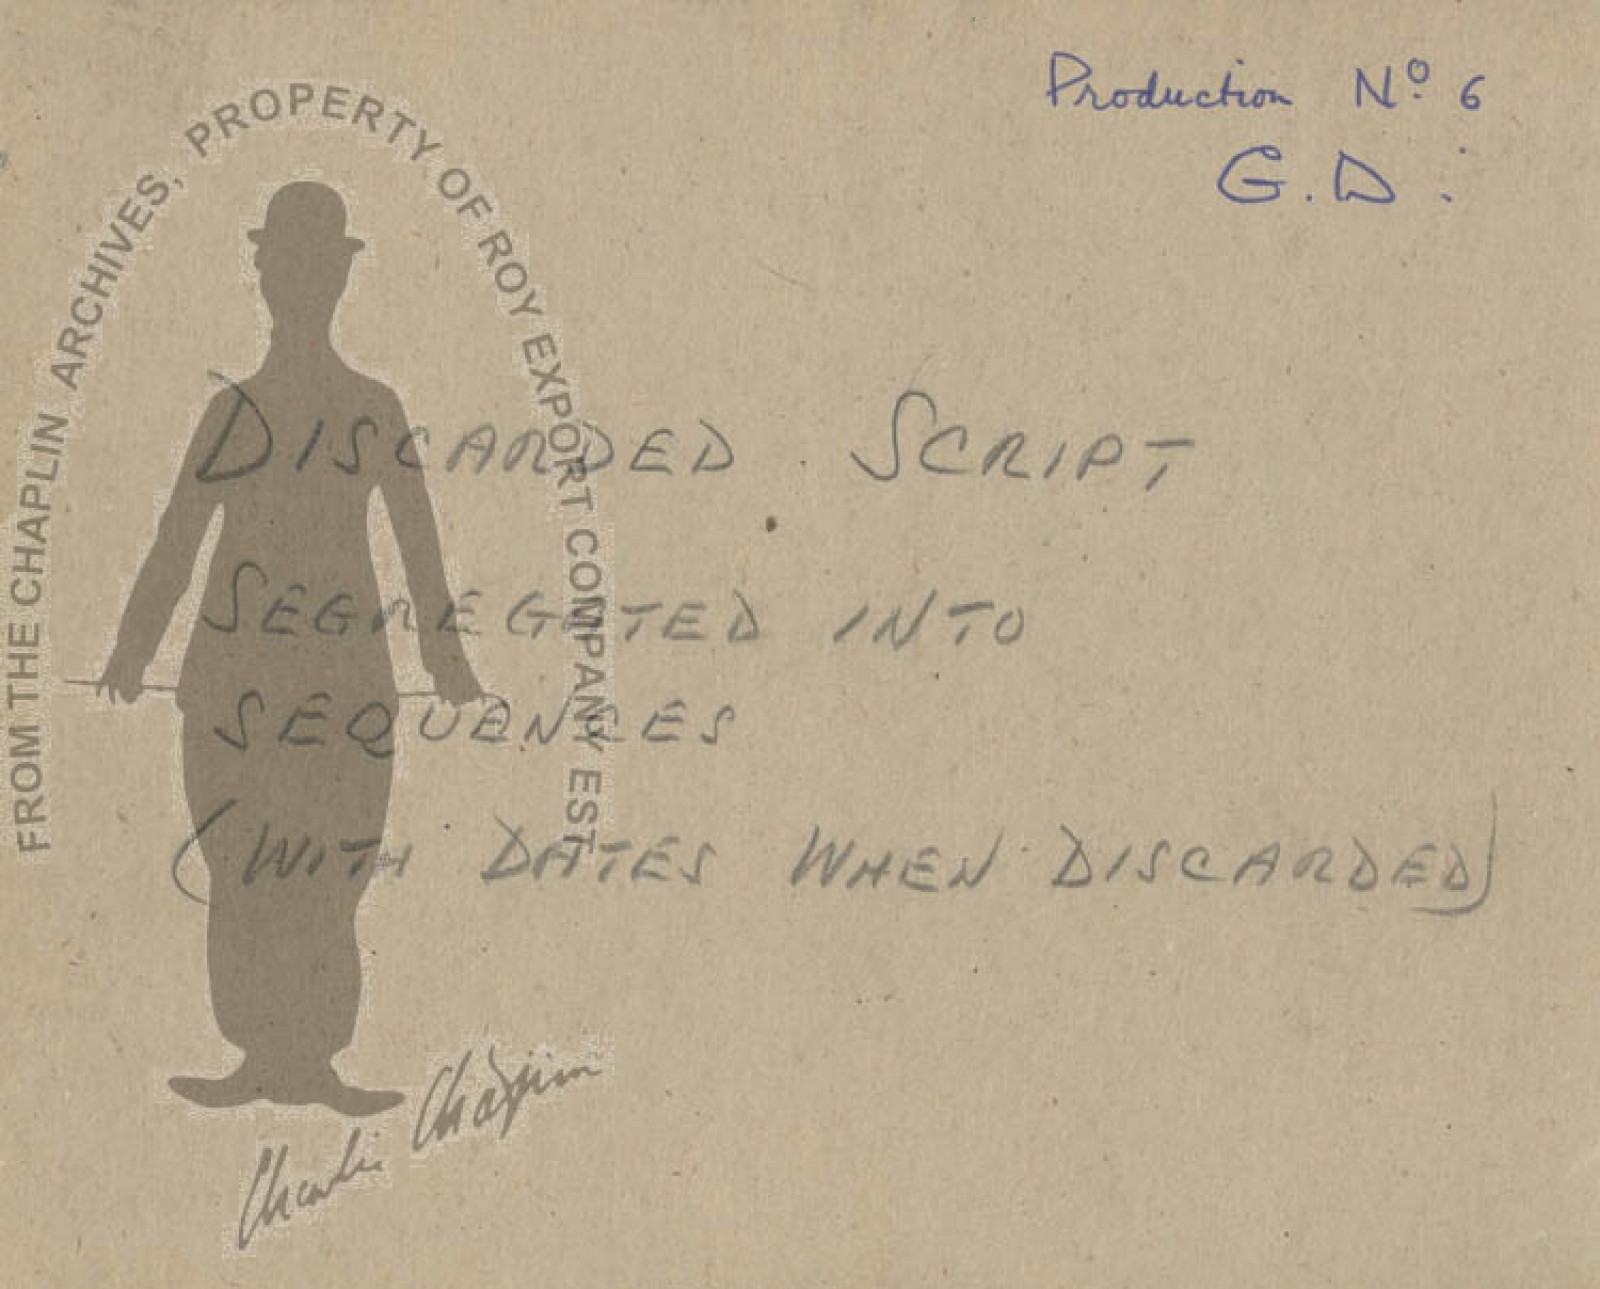 Production Nº 6
G.D.
FROM THE CHAPLIN ARCHIVES, PROPERTY OF ROY EXPORT COMPANY EST
DISCARDED SCRIPT
SEGREGATED INTO
SEQUENCES
(WITH DATES WHEN DISCARDED)
Charlie Chaplin